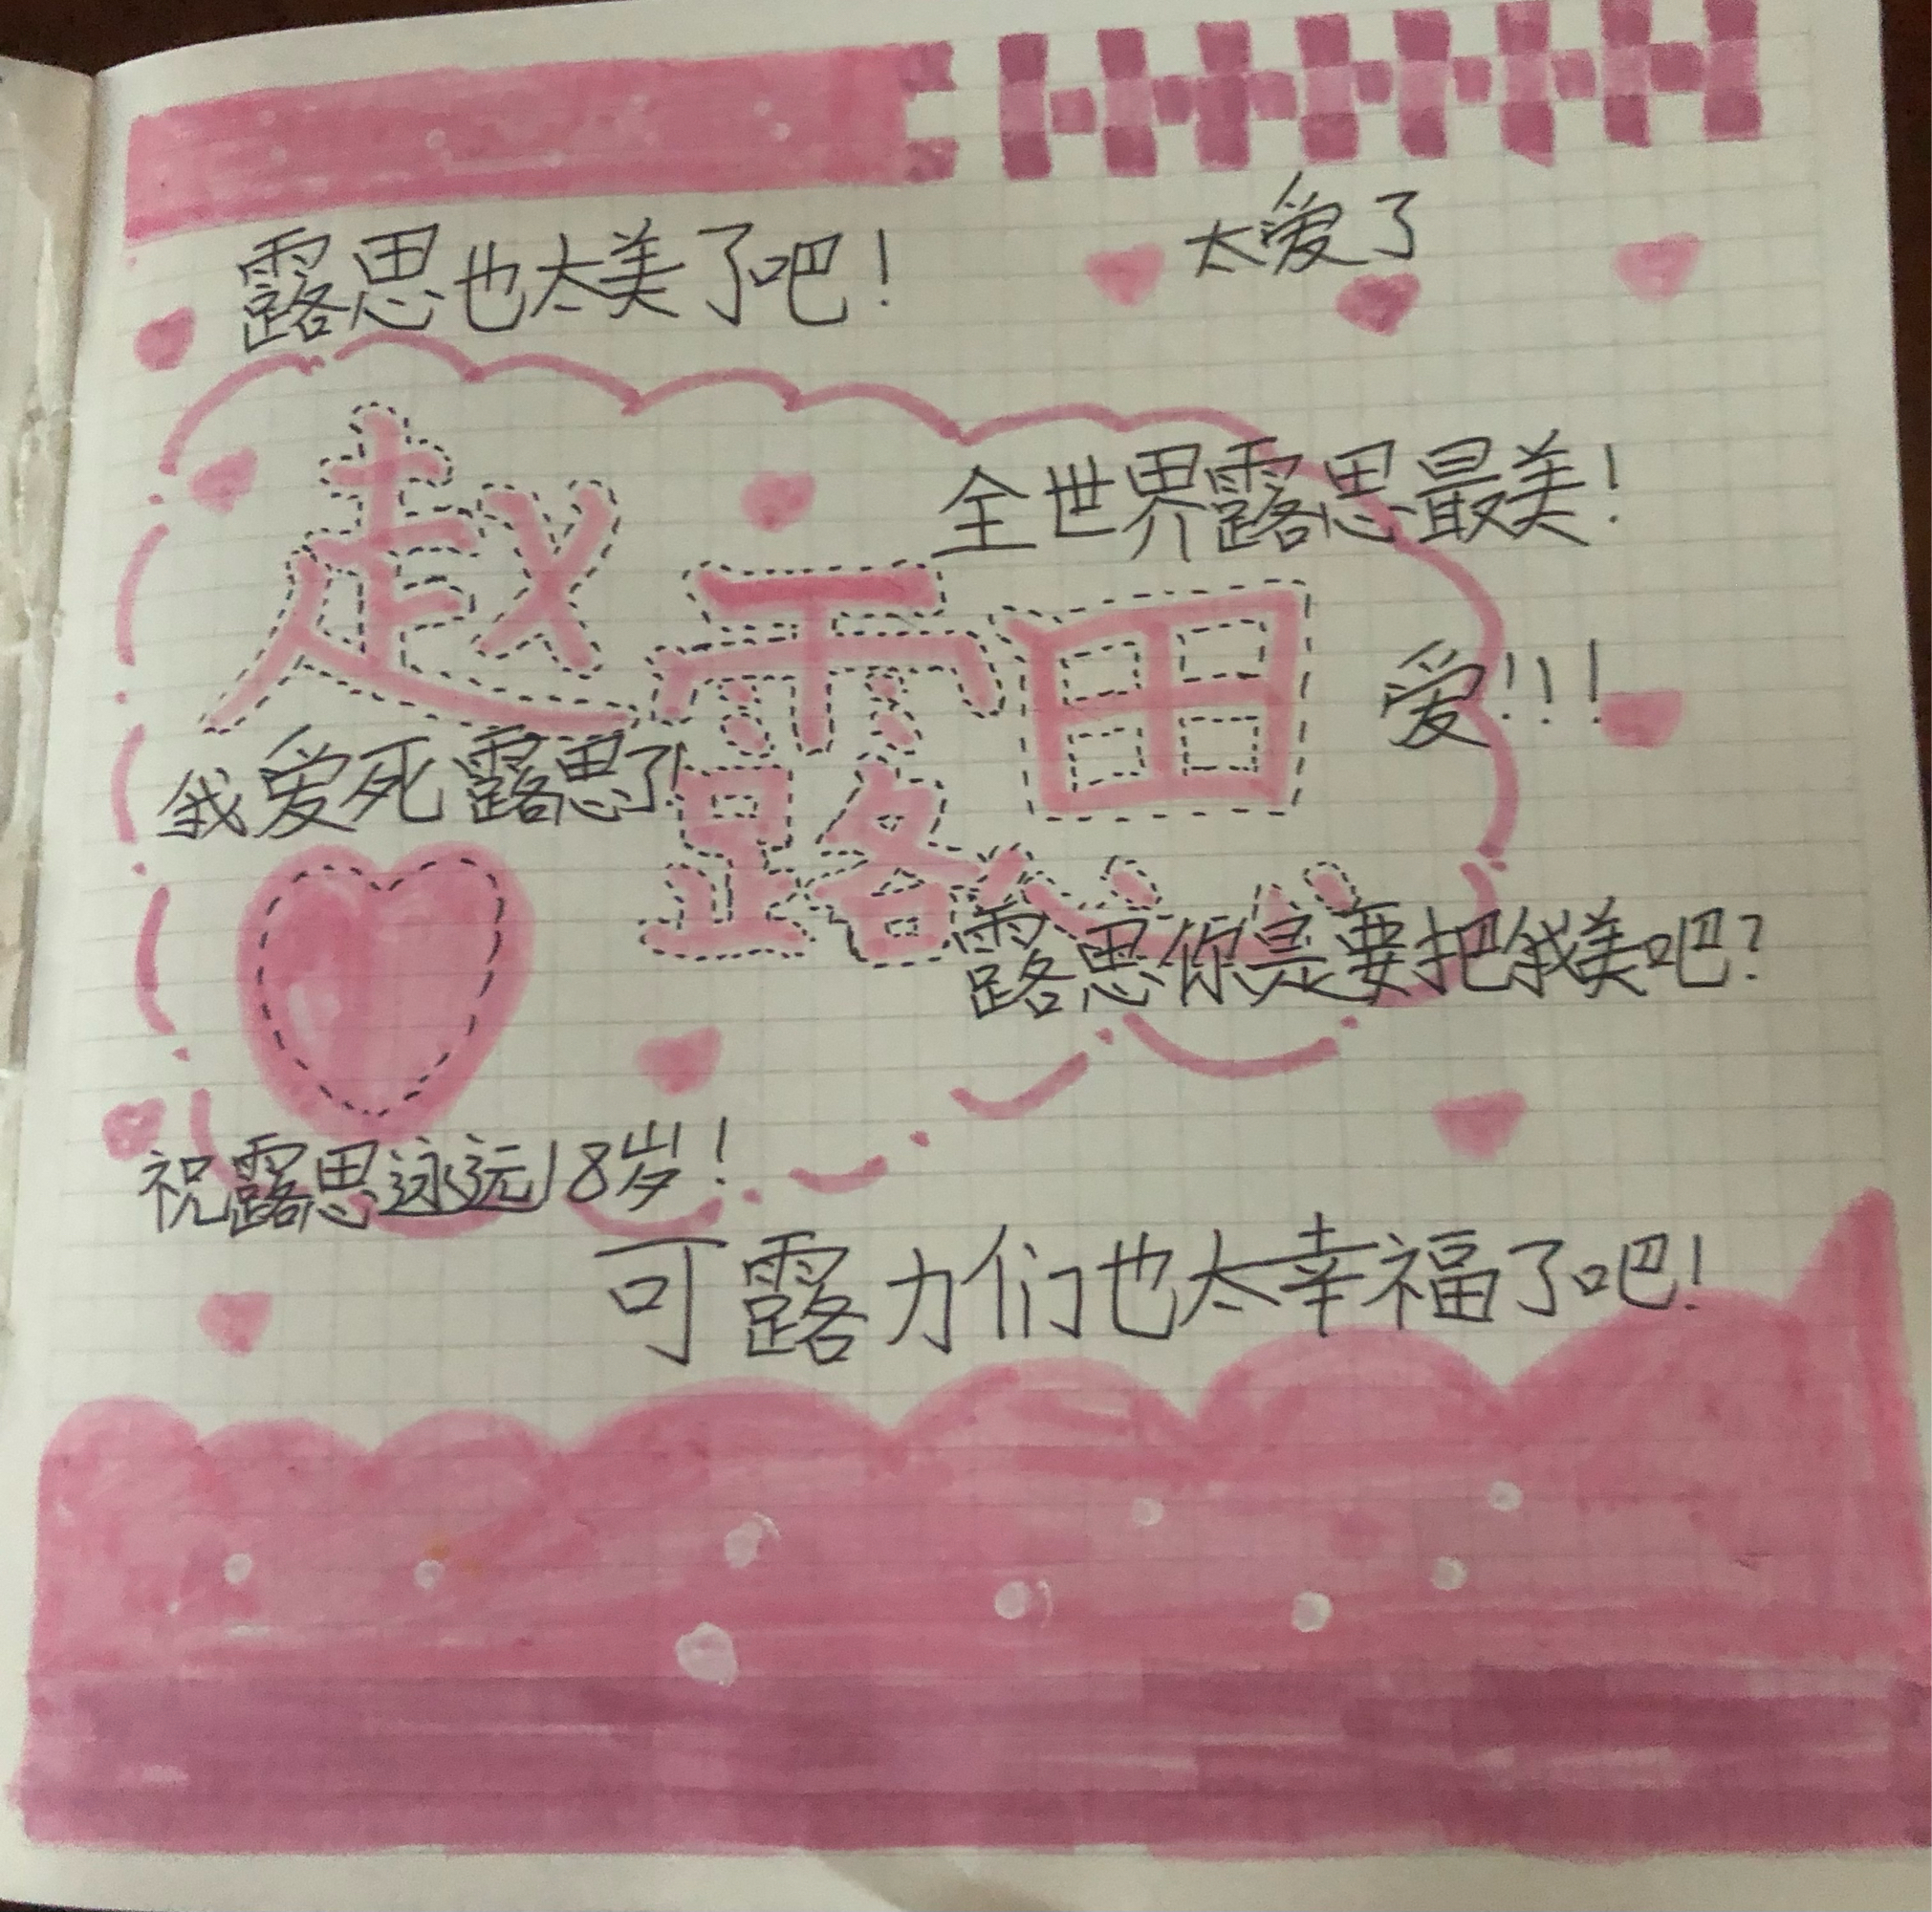 露思也太美了吧!
太爱了
全世界露思最美!
赵露思
爱!!!
我爱死露思了!
露思你是要把我美吧?
祝露思永远18岁!
可露力们也太幸福了吧!